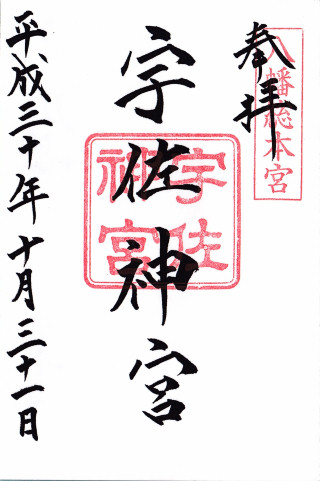 八幡総本宮
奉拝
宇佐神宮
宇佐
神宮
平成三十年十月三十一日